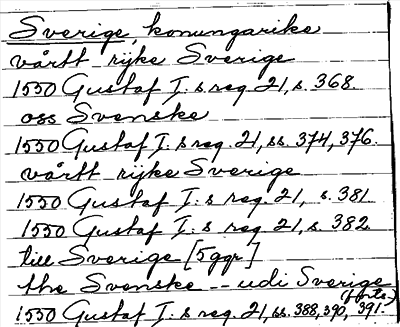 Sverige, konungarike
vårtt rijke Sverige
1550 Gustaf I:s reg. 21, s. 368.
oss Svenske
1550 Gustaf I:s reg. 21, ss. 374, 376.
vårtt rijke Sverige
1550 Gustaf I:s reg. 21, s. 381
1550 Gustaf I:s reg. 21, s. 382
till Sverige [5 ggr]
the Svenske -- udi Sverige
(forts.)
1550 Gustaf I:s reg. 21, ss. 388, 390, 391.